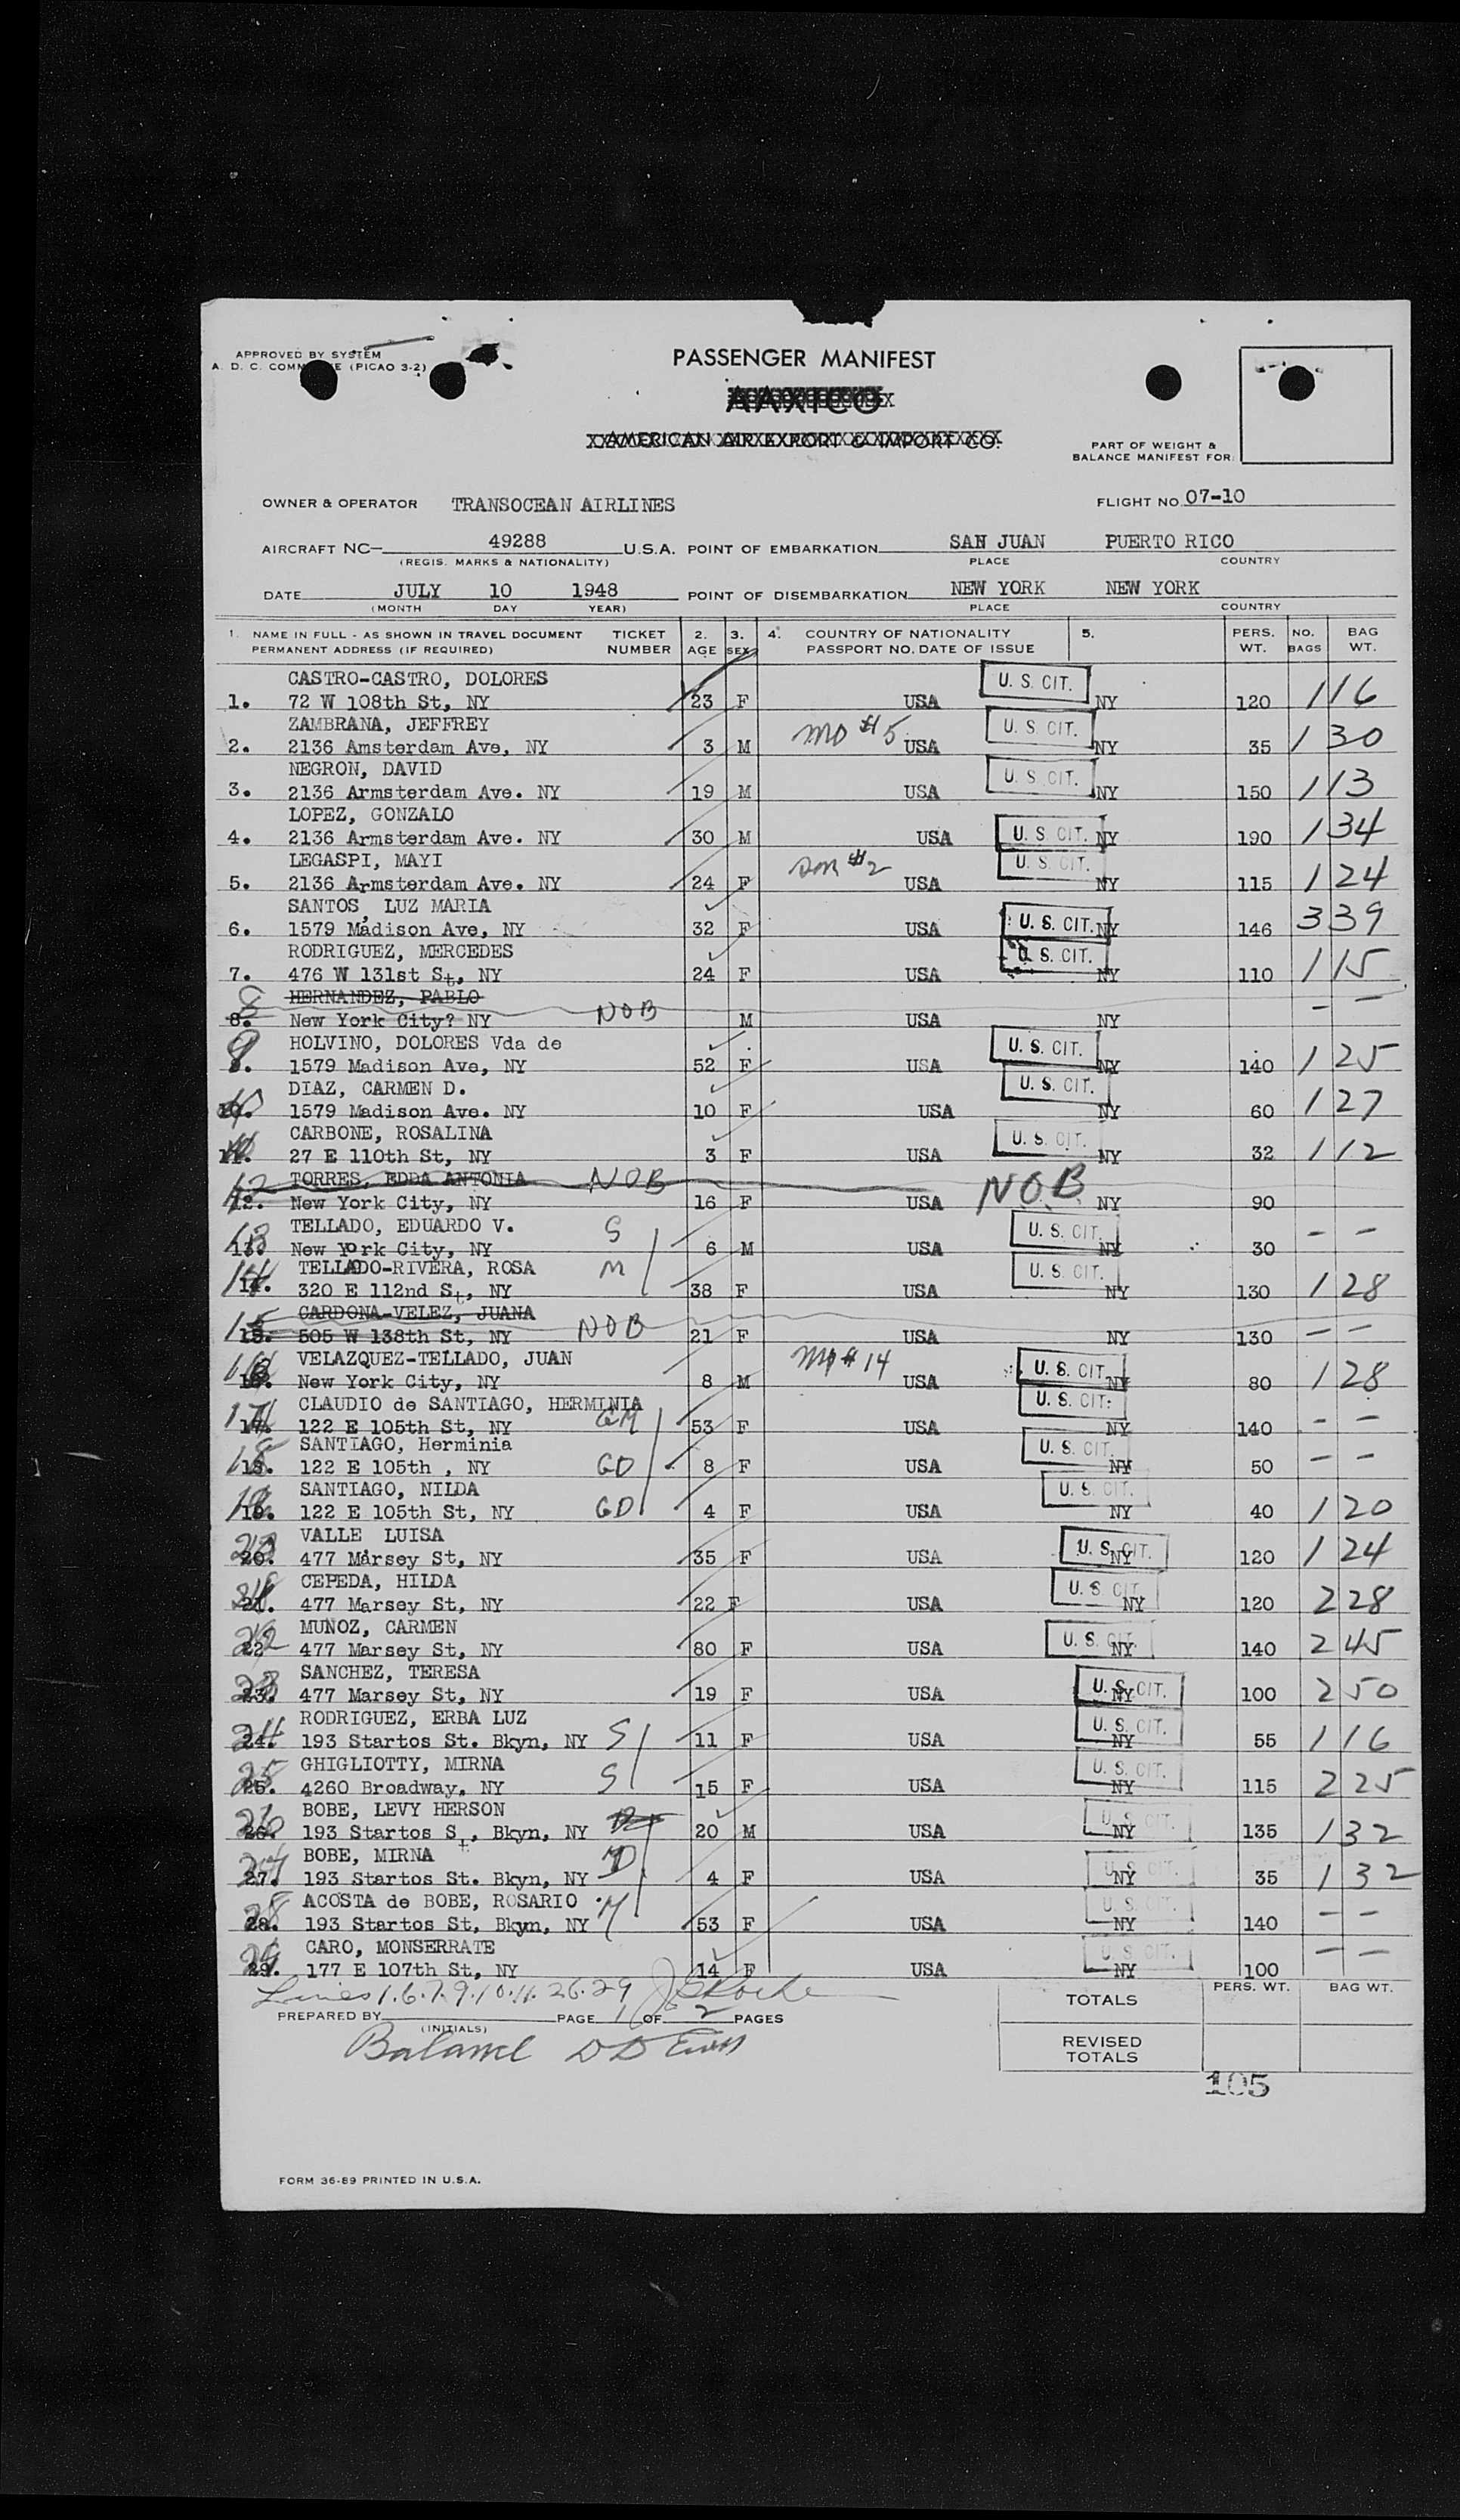 APPROVED BY SYSTEM
A. D. C. (PICAO 3-2)
PASSENGER MANIFEST
AAXICO
AMERICAN AIR EXPORT & IMPORT CO.
PART OF WEIGHT &
BALANCE MANIFEST FOR:
OWNER & OPERATOR TRANSOCEAN AIRLINES FLIGHT NO. 07-10
AIRCRAFT NC- 49288 U.S.A. POINT OF EMBARKATION SAN JUAN PUERTO RICO
(REGIS. MARKS & NATIONALITY) PLACE COUNTRY
DATE JULY 10 1948 POINT OF DISEMBARKATION NEW YORK NEW YORK
(MONTH DAY YEAR) PLACE COUNTRY
1. NAME IN FULL - AS SHOWN IN TRAVEL DOCUMENT TICKET 2. 3. 4. COUNTRY OF NATIONALITY 5. PERS. NO. BAG
PERMANENT ADDRESS (IF REQUIRED) NUMBER AGE SEX PASSPORT NO. DATE OF ISSUE WT. BAGS WT.
CASTRO-CASTRO, DOLORES U. S. CIT.
1. 72 W 108th St, NY 23 F USA NY 120 1 16
ZAMBRANA, JEFFREY MO #5 U. S. CIT.
2. 2136 Amsterdam Ave, NY 3 M USA NY 35 1 30
NEGRON, DAVID U. S. CIT.
3. 2136 Armsterdam Ave. NY 19 M USA NY 150 1 13
LOPEZ, GONZALO
4. 2136 Armsterdam Ave. NY 30 M USA U. S. CIT. NY 190 1 34
LEGASPI, MAYI #2 U. S. CIT.
5. 2136 Armsterdam Ave. NY 24 F USA NY 115 1 24
SANTOS, LUZ MARIA
6. 1579 Madison Ave, NY 32 F USA U. S. CIT. NY 146 3 39
RODRIGUEZ, MERCEDES U. S. CIT.
7. 476 W 131st St, NY 24 F USA NY 110 1 15
HERNANDEZ, PABLO NOB
8 8. New York City? NY M USA NY - -
HOLVINO, DOLORES Vda de U. S. CIT.
9 1579 Madison Ave, NY 52 F USA NY 140 1 25
DIAZ, CARMEN D. U. S. CIT.
10 1579 Madison Ave. NY 10 F USA NY 60 1 27
CARBONE, ROSALINA U. S. CIT.
11. 27 E 110th St, NY 3 F USA NY 32 1 12
TORRES, EDDA ANTONIA NOB NOB
12 12. New York City, NY 16 F USA NY 90
TELLADO, EDUARDO V. S U. S. CIT.
13 13. New York City, NY 6 M USA NY 30 - -
TELLADO-RIVERA, ROSA M U. S. CIT.
14 14. 320 E 112nd St, NY 38 F USA NY 130 1 28
CARDONA-VELEZ, JUANA NOB
15 15. 505 W 138th St, NY 21 F USA NY 130 - -
VELAZQUEZ-TELLADO, JUAN #14 U. S. CIT.
16 16. New York City, NY 8 M USA NY 80 1 28
CLAUDIO de SANTIAGO, HERMINIA GM U. S. CIT.
17 17. 122 E 105th St, NY 53 F USA NY 140 - -
SANTIAGO, Herminia U. S. CIT.
18 18. 122 E 105th , NY GD 8 F USA NY 50 - -
SANTIAGO, NILDA U. S. CIT.
19 19. 122 E 105th St, NY GD 4 F USA NY 40 1 20
VALLE LUISA
20 20. 477 Marsey St, NY 35 F USA U. S. CIT. NY 120 1 24
CEPEDA, HILDA U. S. CIT.
21 21. 477 Marsey St, NY 22 F USA NY 120 2 28
MUÑOZ, CARMEN
22 22. 477 Marsey St, NY 80 F USA U. S. CIT. NY 140 2 45
SANCHEZ, TERESA
23 23. 477 Marsey St, NY 19 F USA U. S. CIT. NY 100 2 50
RODRIGUEZ, ERBA LUZ U. S. CIT.
24 24. 193 Startos St. Bkyn, NY S 11 F USA NY 55 1 16
GHIGLIOTTY, MIRNA U. S. CIT.
25 25. 4260 Broadway, NY S 15 F USA NY 115 2 25
BOBE, LEVY HERSON U. S. CIT.
26 26. 193 Startos St, Bkyn, NY 20 M USA NY 135 1 32
BOBE, MIRNA U. S. CIT.
27 27. 193 Startos St. Bkyn, NY D 4 F USA NY 35 1 32
ACOSTA de BOBE, ROSARIO M U. S. CIT.
28 28. 193 Startos St, Bkyn, NY 53 F USA NY 140 - -
CARO, MONSERRATE U. S. CIT.
29 29. 177 E 107th St, NY 14 F USA NY 100 - -
Lines 1.6.7.9.10.11.26.29
PREPARED BY PAGE 1 OF 2 PAGES
(INITIALS)
Balance
TOTALS PERS. WT. BAG WT.
REVISED
TOTALS
105
FORM 36-89 PRINTED IN U.S.A.